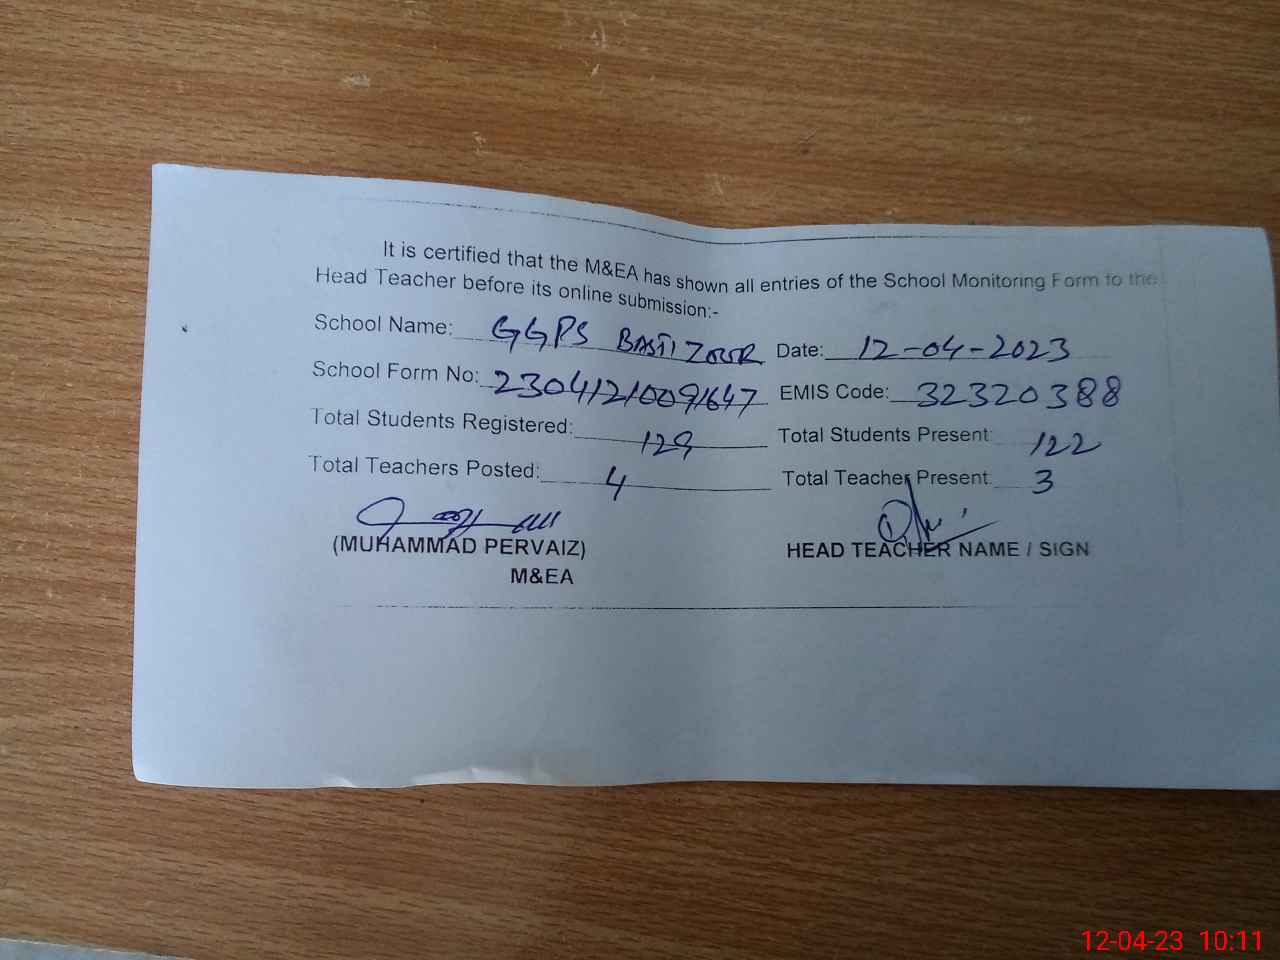 It is certified that the M&EA has shown all entries of the School Monitoring Form to the
Head Teacher before its online submission:-
School Name: GGPS BASTI ZOOR Date: 12-04-2023
School Form No: 230412/009/647 EMIS Code: 32320388
Total Students Registered: 129 Total Students Present: 122
Total Teachers Posted: 4 Total Teacher Present: 3
(MUHAMMAD PERVAIZ) HEAD TEACHER NAME / SIGN
M&EA
12-04-23 10:11